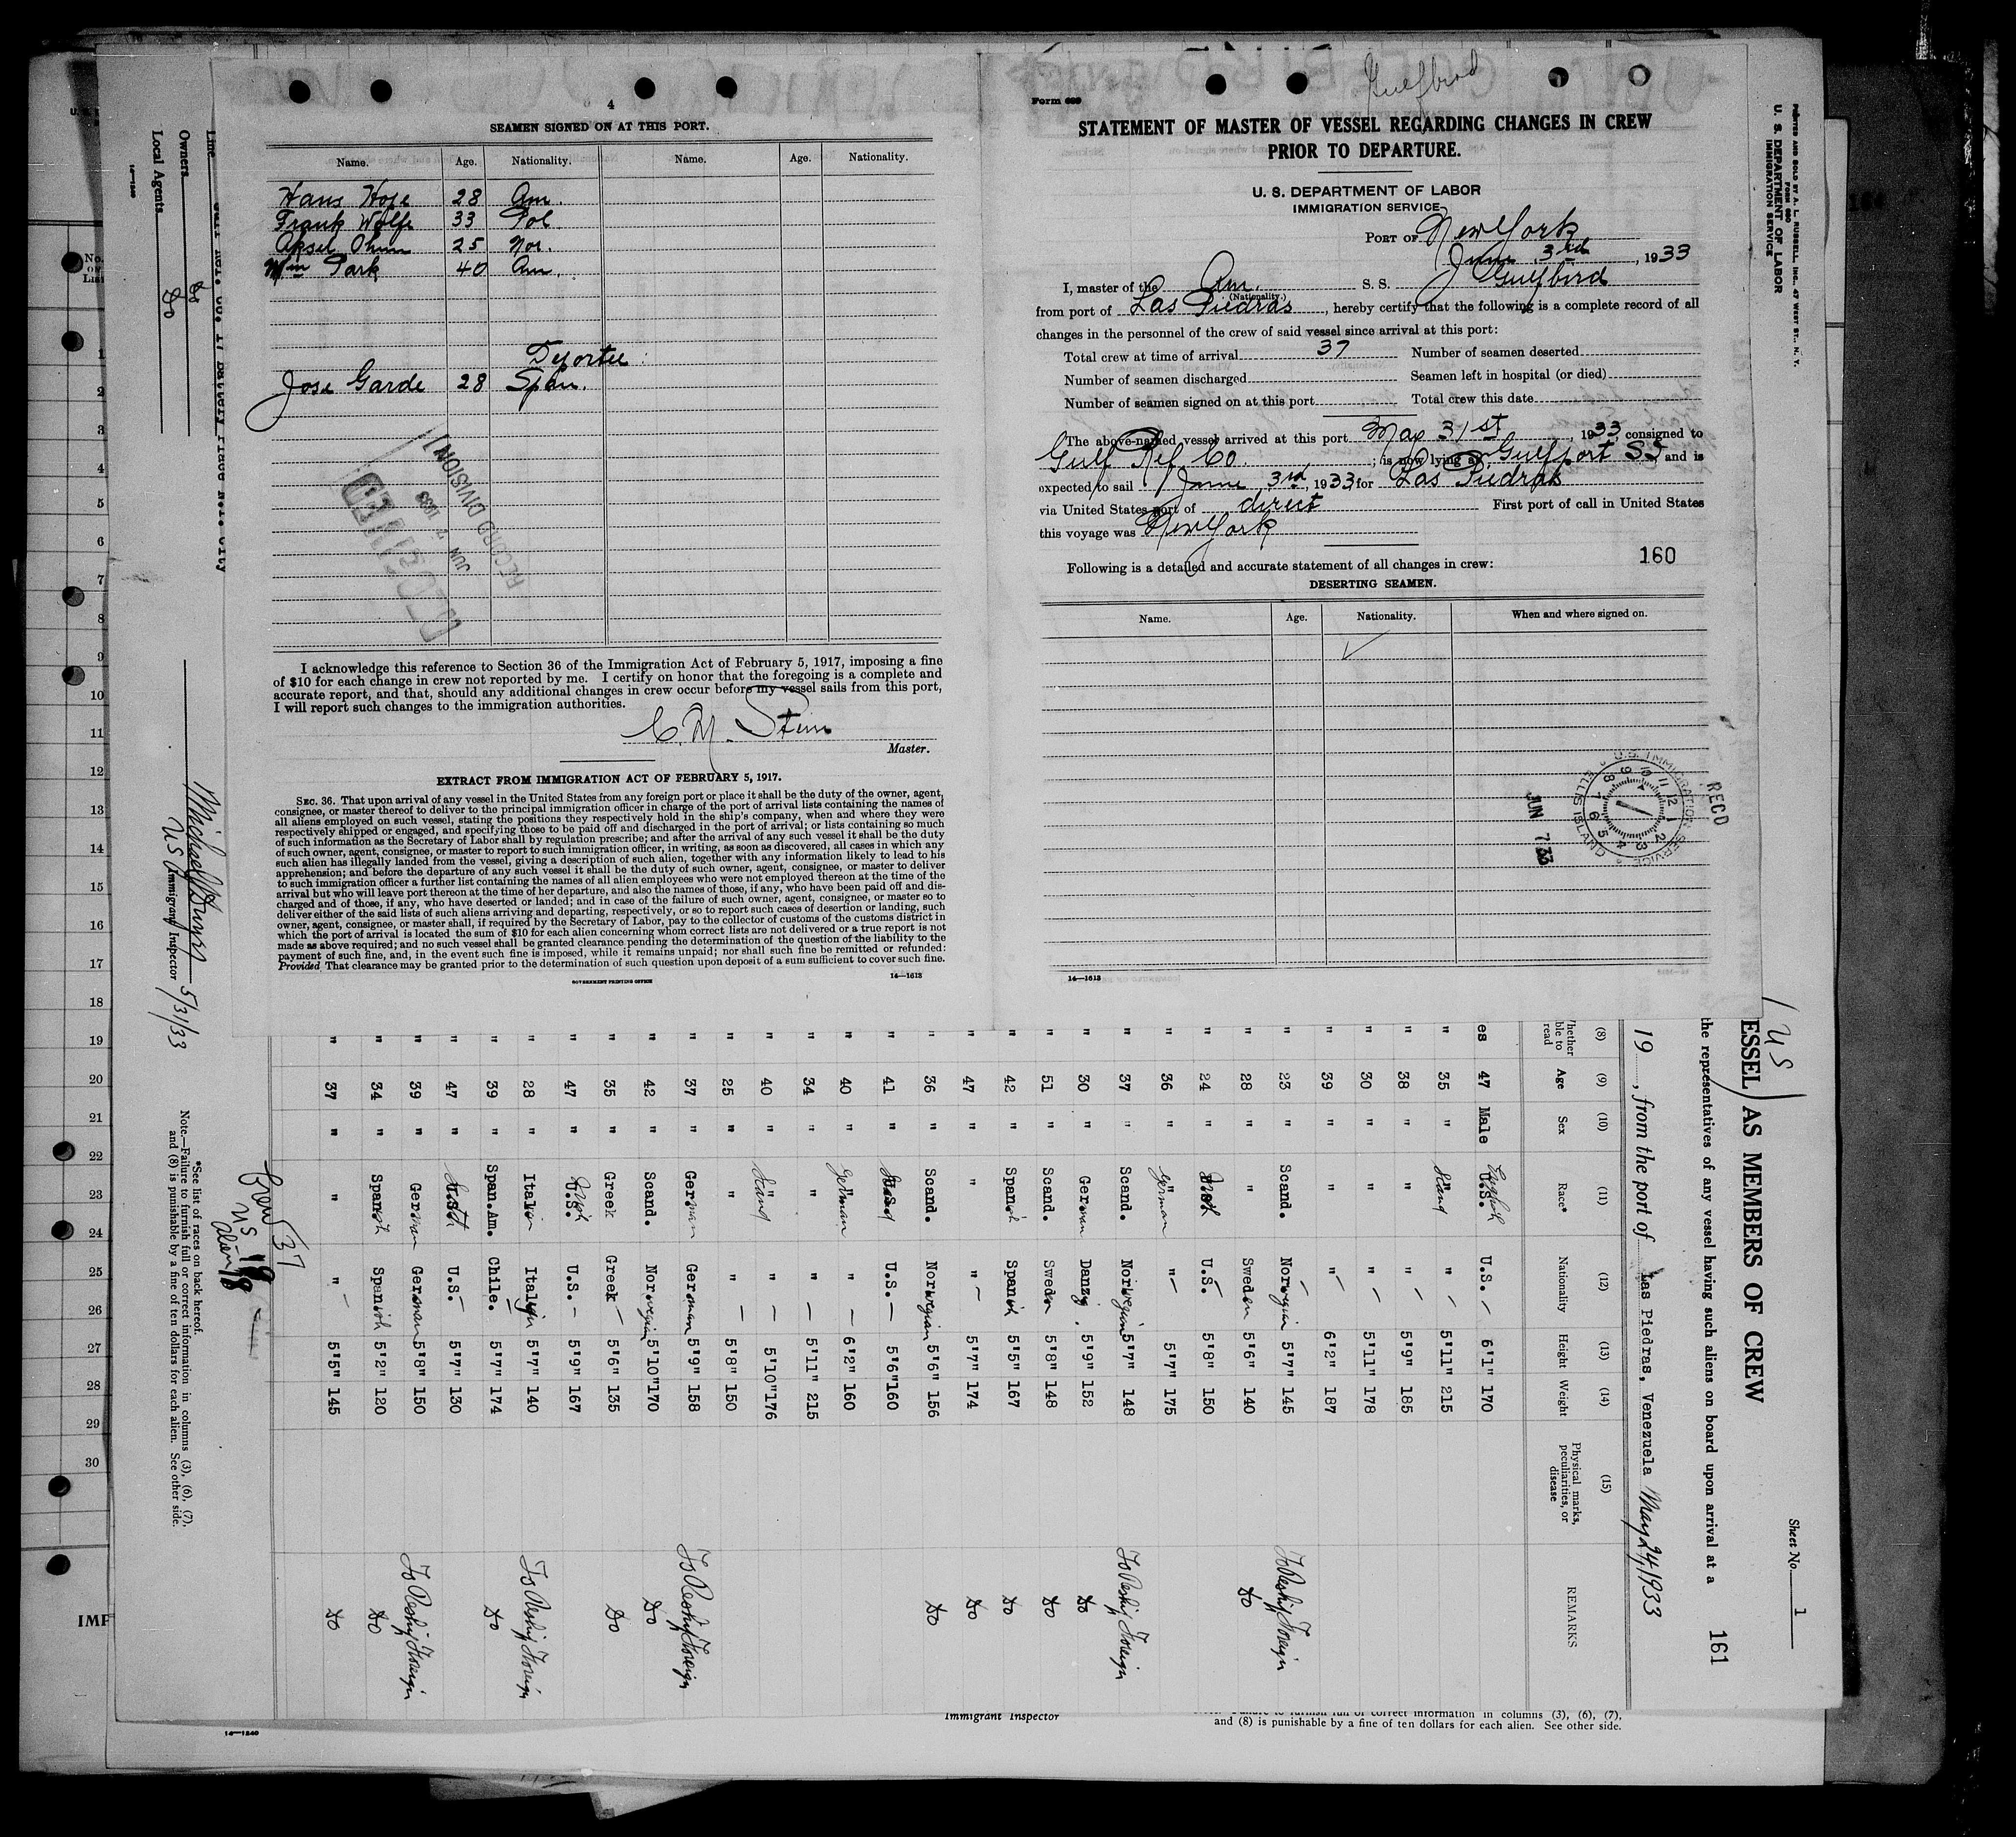 4
SEAMEN SIGNED ON AT THIS PORT.
Name. Age. Nationality. Name. Age. Nationality.
Hans Hope 28 Am.
Frank Wolfe 33 Pol
Aksel 25 Nor.
Wm Park 40 Am.
Jose Garde 28 Span.
RECORD DIVISION
JUN 7 1933
I acknowledge this reference to Section 36 of the Immigration Act of February 5, 1917, imposing a fine
of $10 for each change in crew not reported by me. I certify on honor that the foregoing is a complete and
accurate report, and that, should any additional changes in crew occur before my vessel sails from this port,
I will report such changes to the immigration authorities.
C. M. Stein
Master.
EXTRACT FROM IMMIGRATION ACT OF FEBRUARY 5, 1917.
SEC. 36. That upon arrival of any vessel in the United States from any foreign port or place it shall be the duty of the owner, agent,
consignee, or master thereof to deliver to the principal immigration officer in charge of the port of arrival lists containing the names of
all aliens employed on such vessel, stating the positions they respectively hold in the ship's company, when and where they were
respectively shipped or engaged, and specifying those to be paid off and discharged in the port of arrival; or lists containing so much
of such information as the Secretary of Labor shall by regulation prescribe; and after the arrival of any such vessel it shall be the duty
of such owner, agent, consignee, or master to report to such immigration officer, in writing, as soon as discovered, all cases in which any
such alien has illegally landed from the vessel, giving a description of such alien, together with any information likely to lead to his
apprehension; and before the departure of any such vessel it shall be the duty of such owner, agent, consignee, or master to deliver
to such immigration officer a further list containing the names of all alien employees who were not employed thereon at the time of the
arrival but who will leave port thereon at the time of her departure, and also the names of those, if any, who have been paid off and dis-
charged and of those, if any, who have deserted or landed; and in case of the failure of such owner, agent, consignee, or master so to
deliver either of the said lists of such aliens arriving and departing, respectively, or so to report such cases of desertion or landing, such
owner, agent, consignee, or master shall, if required by the Secretary of Labor, pay to the collector of customs of the customs district in
which the port of arrival is located the sum of $10 for each alien concerning whom correct lists are not delivered or a true report is not
made as above required; and no such vessel shall be granted clearance pending the determination of the question of the liability to the
payment of such fine, and, in the event such fine is imposed, while it remains unpaid; nor shall such fine be remitted or refunded:
Provided That clearance may be granted prior to the determination of such question upon deposit of a sum sufficient to cover such fine.
14—1613
GOVERNMENT PRINTING OFFICE
Gulfbird
Form 689
STATEMENT OF MASTER OF VESSEL REGARDING CHANGES IN CREW
PRIOR TO DEPARTURE.
U. S. DEPARTMENT OF LABOR
IMMIGRATION SERVICE
PORT OF New York
June 3rd, 1933
I, master of the Am. S. S. Gulfbird
(Nationality.)
from port of Las Piedras, hereby certify that the following is a complete record of all
changes in the personnel of the crew of said vessel since arrival at this port:
Total crew at time of arrival 37 Number of seamen deserted
Number of seamen discharged Seamen left in hospital (or died)
Number of seamen signed on at this port Total crew this date
The above-named vessel arrived at this port May 31st, 1933, consigned to
Gulf Ref Co; is now lying at Gulfport SI and is
expected to sail June 3rd, 1933, for Las Piedras
via United States port of direct First port of call in United States
this voyage was New York
160
Following is a detailed and accurate statement of all changes in crew:
DESERTING SEAMEN.
Name. Age. Nationality. When and where signed on.
REC'D
U.S. IMMIGRATION SERVICE
ELLIS ISLAND
JUN 7 33
14—1613
PRINTED AND SOLD BY A. L. RUSSELL, INC., 47 WEST ST., N. Y.
FORM 680
U. S. DEPARTMENT OF LABOR
IMMIGRATION SERVICE
Sheet No. 1
161
US
ESSEL AS MEMBERS OF CREW
the representatives of any vessel having such aliens on board upon arrival at a
19 , from the port of Las Piedras, Venezuela May 24, 1933
(8) (9) (10) (11) (12) (13) (14) (15)
Whether able to read Age Sex Race* Nationality Height Weight Physical marks, peculiarities, or disease REMARKS
es 47 Male English U.S. U.S. — 6'1" 170
" 35 " Scand " — 5'11" 215
" 38 " " " — 5'9" 185
" 30 " " " — 5'11" 178
" 39 " " " — 6'2" 187
" 23 " Scand. Norwegian 5'7" 145 To Reship Foreign
" 28 " " Sweden 5'6" 140 Do
" 24 " U.S. — 5'8" 150
" 36 " German " — 5'7" 175
" 37 " Scand. Norwegian 5'7" 148 To Reship Foreign
" 30 " German Danzig. 5'9" 152 Do
" 51 " Scand. Sweden 5'8" 148 Do
" 42 " Spanish Spanish 5'5" 167 Do
" 47 " " — 5'7" 174 Do
" 36 " Scand. Norwegian 5'6" 156 Do
" 41 " U.S. — 5'6" 160
" 40 " German " — 6'2" 160
" 34 " " " — 5'11" 215
" 40 " Scand " — 5'10" 176
" 25 " " " — 5'8" 150
" 37 " German German 5'9" 158 To Reship Foreign
" 42 " Scand. Norwegian 5'10" 170 Do
" 35 " Greek Greek — 5'6" 135 Do
" 47 " U.S. U.S. — 5'9" 167
" 28 " Italian Italian 5'7" 140 To Reship Foreign
" 39 " Span.Am. Chile. 5'7" 174 Do
" 47 " U.S. — 5'7" 130
" 39 " German German 5'8" 150 To Reship Foreign
" 34 " Spanish Spanish 5'2" 120 Do
" 37 " " " — 5'5" 145 Do
Crew 37
US
Alien 18
*See list of races on back hereof.
Note.—Failure to furnish full or correct information in columns (3), (6), (7),
and (8) is punishable by a fine of ten dollars for each alien. See other side.
US Immigrant Inspector 5/31/33
Line
Owners Do
Local Agents Do
14—1240
No. on List
1
2
3
4
5
6
7
8
9
10
11
12
13
14
15
16
17
18
19
20
21
22
23
24
25
26
27
28
29
30
IMP
14—1240
Immigrant Inspector
and (8) is punishable by a fine of ten dollars for each alien. See other side.